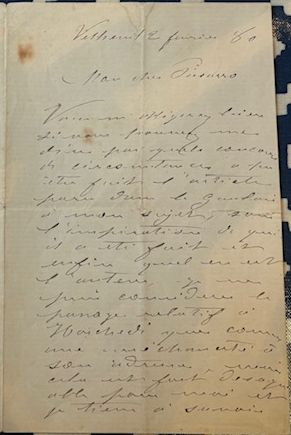 Vétheuil 2 février 80
Mon cher Pissarro
Vous m'obligerez bien
si vous pouvez me
dire par quel concours
de circonstances a pu
être fait l'article
paru dans le Gaulois
à mon sujet, sous
l'inspiration de qui
il a été fait et
enfin quel en est
l'auteur. Je ne
puis considérer le
passage relatif à
Hoschedé que comme
une méchanceté à
son adresse, mais
cela est fort désagré
able pour moi et
je tiens à savoir